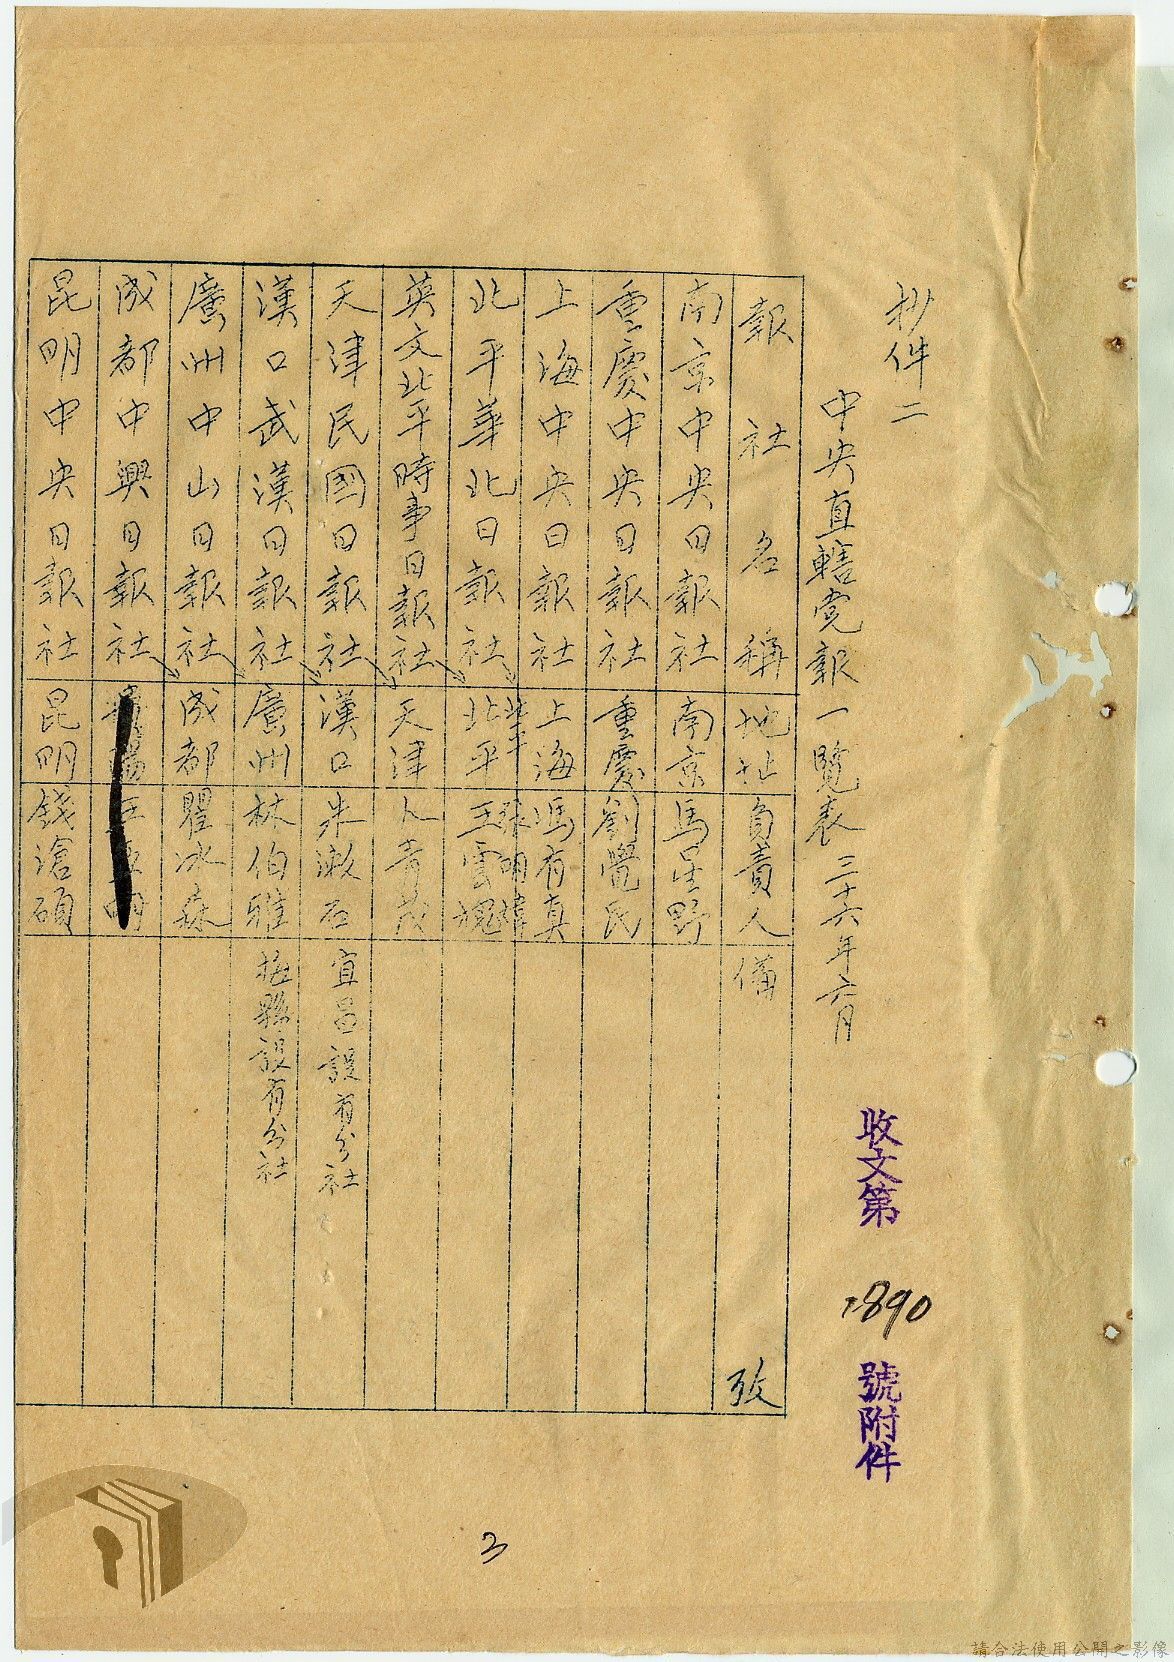 抄件二
中央直轄党報一覽表 三十六年六月
報社名稱 地址 負責人 備 攷
南京中央日報社 南京 馬星野
重慶中央日報社 重慶 劉覺民
上海中央日報社 上海 馮有真
北平華北日報社 北平 張明煒
英文北平時事日報社 北平 王雲槐
天津民國日報社 天津 卜青茂
漢口武漢日報社 漢口 朱漱石 宜昌設有分社
廣州中山日報社 廣州 林伯雅 梅縣設有分社
成都中興日報社 成都 瞿冰森
昆明中央日報社 昆明 錢滄碩
收文第 890 號附件
3
請合法使用公開之影像